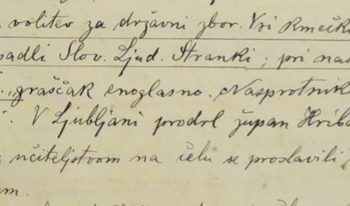 volitev za državni zbor. Vsi kmečki
padli Slov. Ljud. Stranki; pri nas
graščak enoglasno. Nasprotnik
V Ljubljani prodrl župan Hriba
učiteljstvom na čelu se proslavili